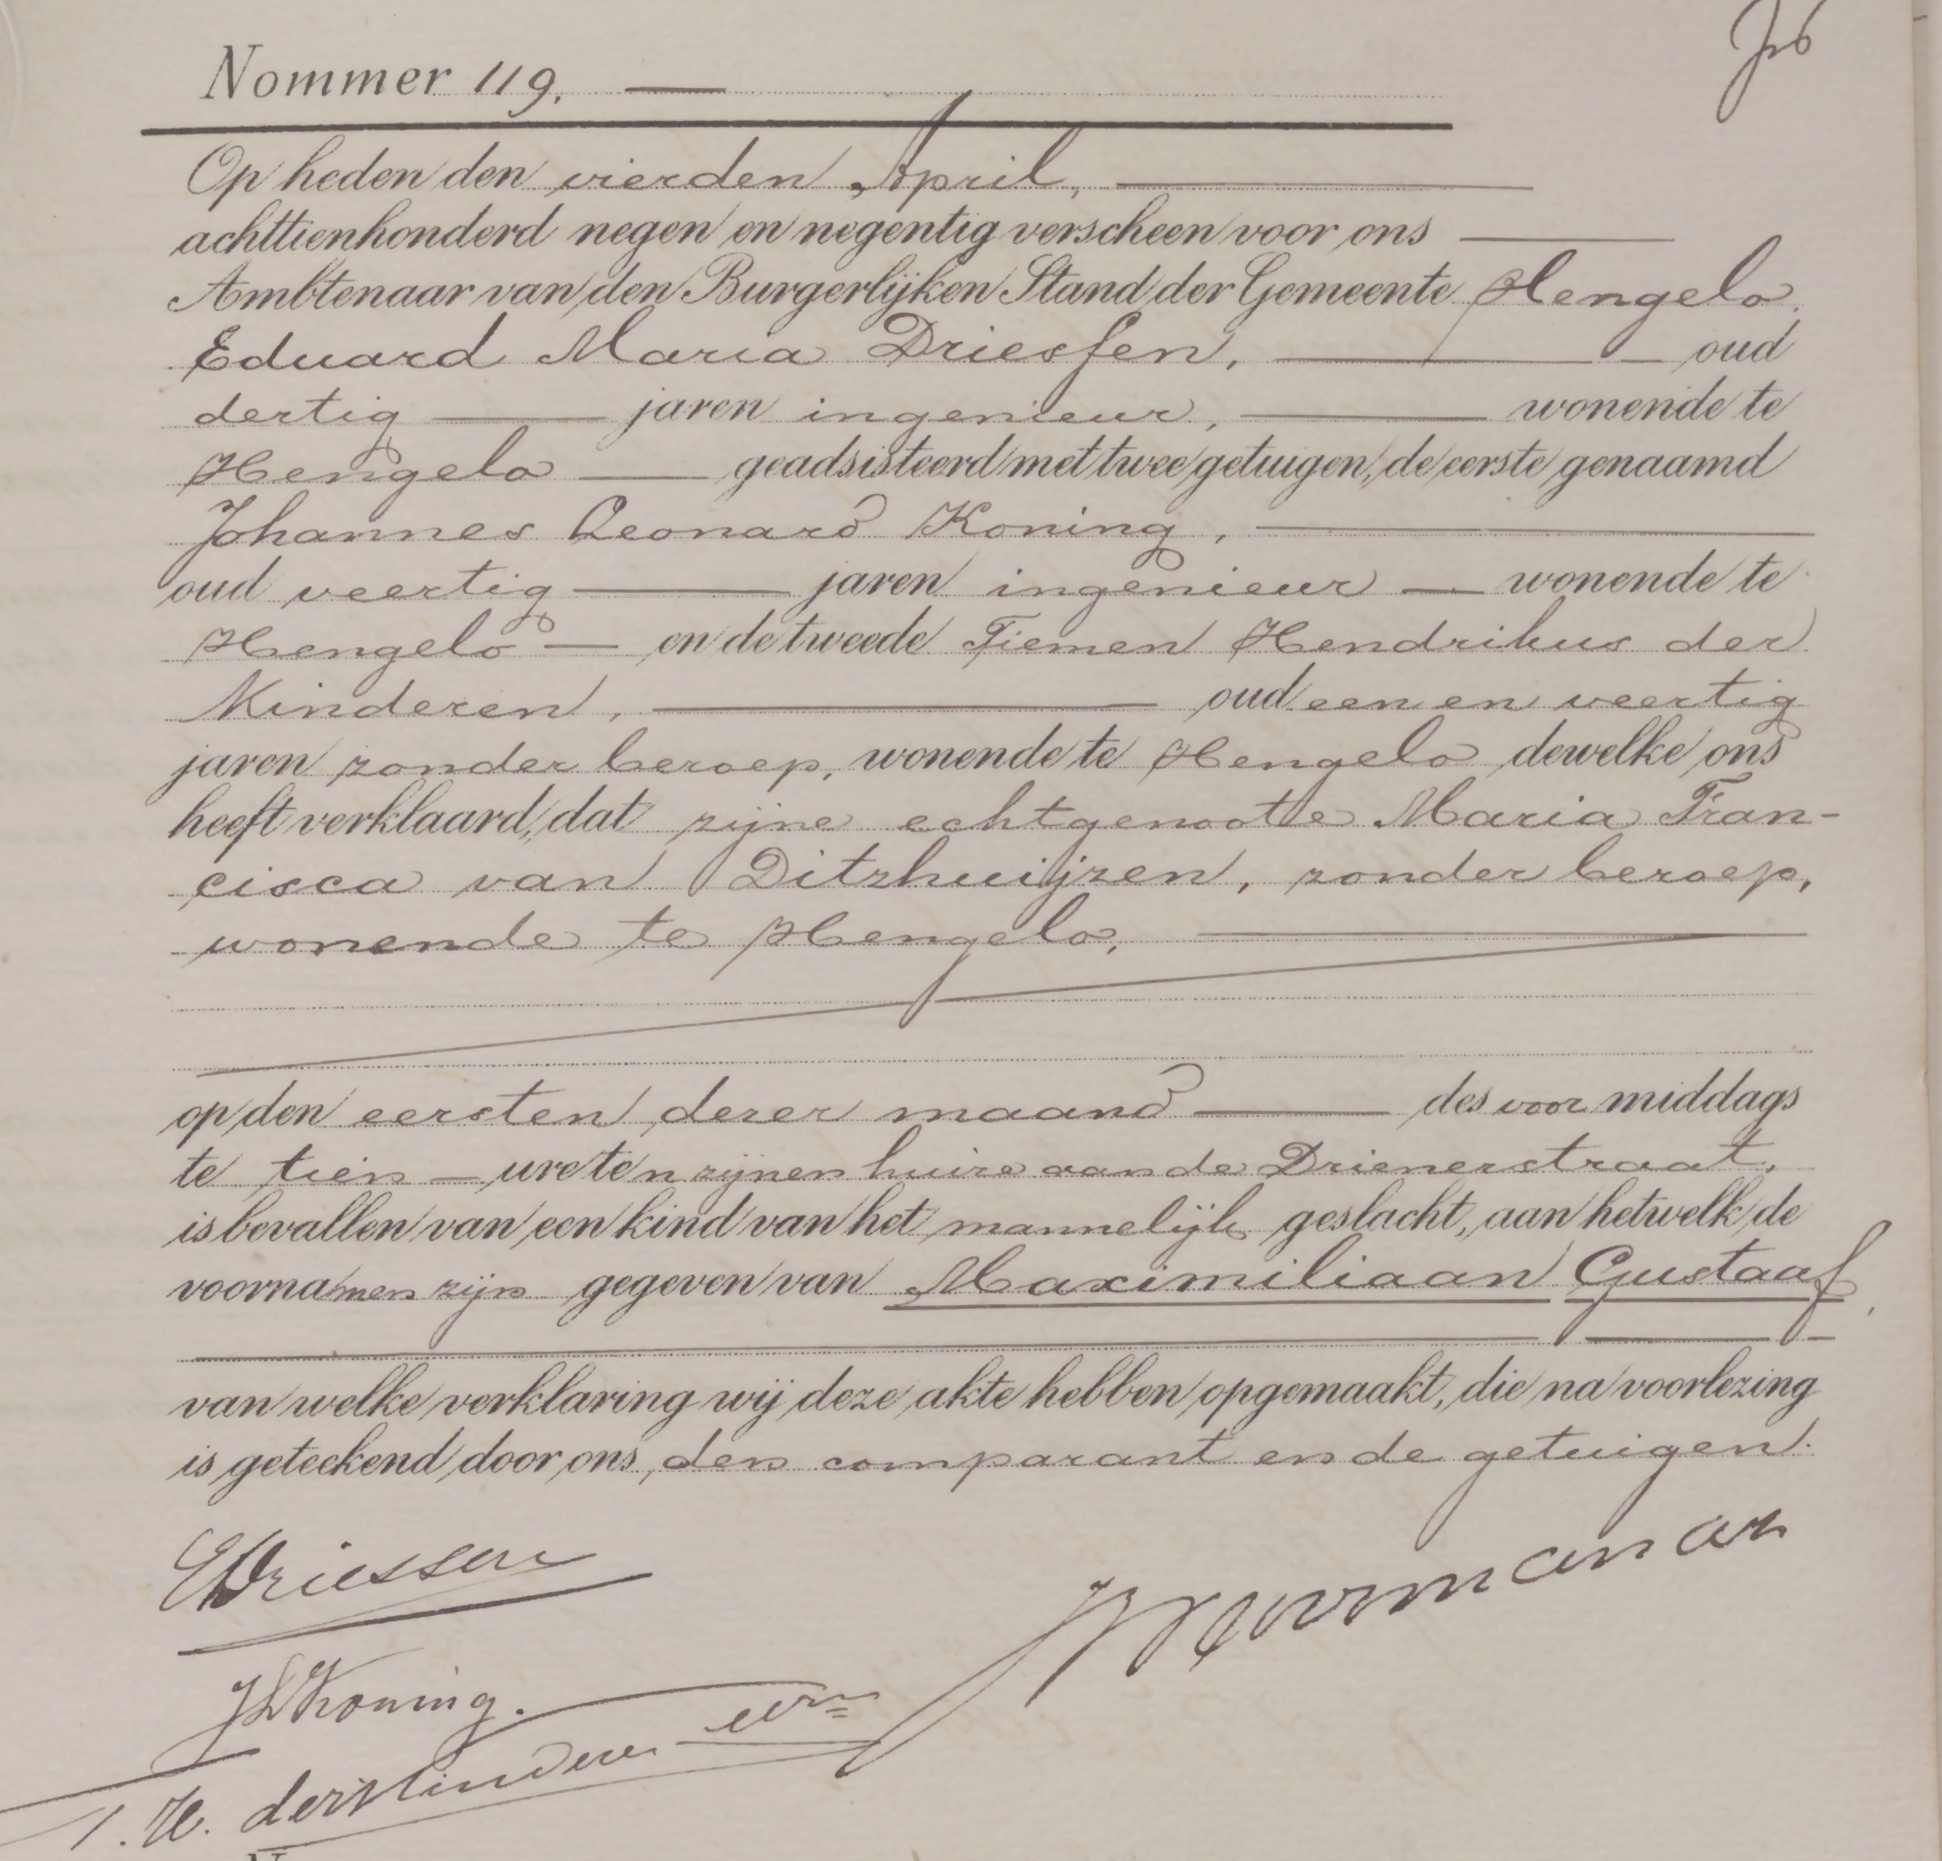 Nommer 119.
Op heden den vierden April,
achttienhonderd negen en negentig verscheen voor ons
Ambtenaar van den Burgerlijken Stand der Gemeente Hengelo
Eduard Maria Driessen, oud
dertig jaren ingenieur, wonende te
Hengelo geadsisteerd met twee getuigen, de eerste genaamd
Johannes Leonard Koning,
oud veertig jaren ingenieur wonende te
Hengelo en de tweede Tiemen Hendrikus der
Kinderen, oud een en veertig
jaren zonder beroep, wonende te Hengelo dewelke ons
heeft verklaard, dat zijne echtgenoote Maria Fran-
cisca van Ditzhuijzen, zonder beroep,
wonende te Hengelo,
op den eersten dezer maand des voor middags
te tien ure ten zijnen huize aan de Drienerstraat,
is bevallen van een kind van het mannelijk geslacht, aan hetwelk de
voornamen zijn gegeven van Maximiliaan Gustaaf,
van welke verklaring wij deze akte hebben opgemaakt, die na voorlezing
is geteekend door ons, den comparant en de getuigen.
EDriessen
JLKoning.
T. H. der Kinderen